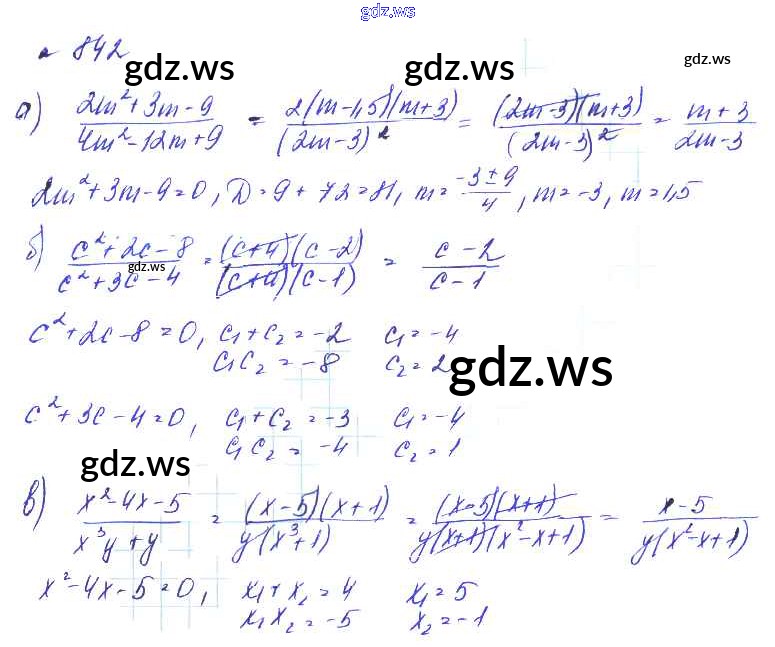 gdz.ws
№ 842
gdz.ws gdz.ws
а) (2m²+3m-9)/(4m²-12m+9) = 2(m-1,5)(m+3)/(2m-3)² = (2m-3)(m+3)/(2m-3)² = (m+3)/(2m-3)
2m²+3m-9=0, D=9+72=81, m=(-3±9)/4, m=-3, m=1,5
б) (c²+2c-8)/(c²+3c-4) = (c+4)(c-2)/(c+4)(c-1) = (c-2)/(c-1)
gdz.ws
c²+2c-8=0, c₁+c₂=-2 c₁=-4
c₁c₂=-8 c₂=2
gdz.ws
c²+3c-4=0, c₁+c₂=-3 c₁=-4
c₁c₂=-4 c₂=1
gdz.ws
в) (x²-4x-5)/(x³y+y) = (x-5)(x+1)/y(x³+1) = (x-5)(x+1)/y(x+1)(x²-x+1) = (x-5)/y(x²-x+1)
x²-4x-5=0, x₁+x₂=4 x₁=5
x₁x₂=-5 x₂=-1